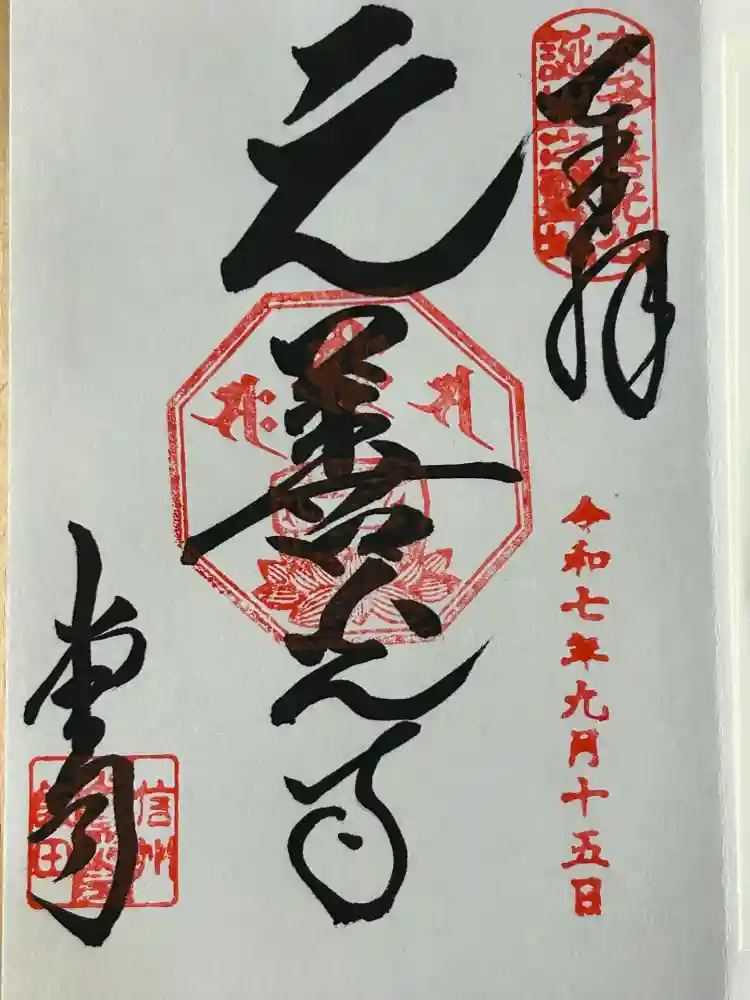 奉拝
令和七年九月十五日
元善光寺
堂司
信州
飯田